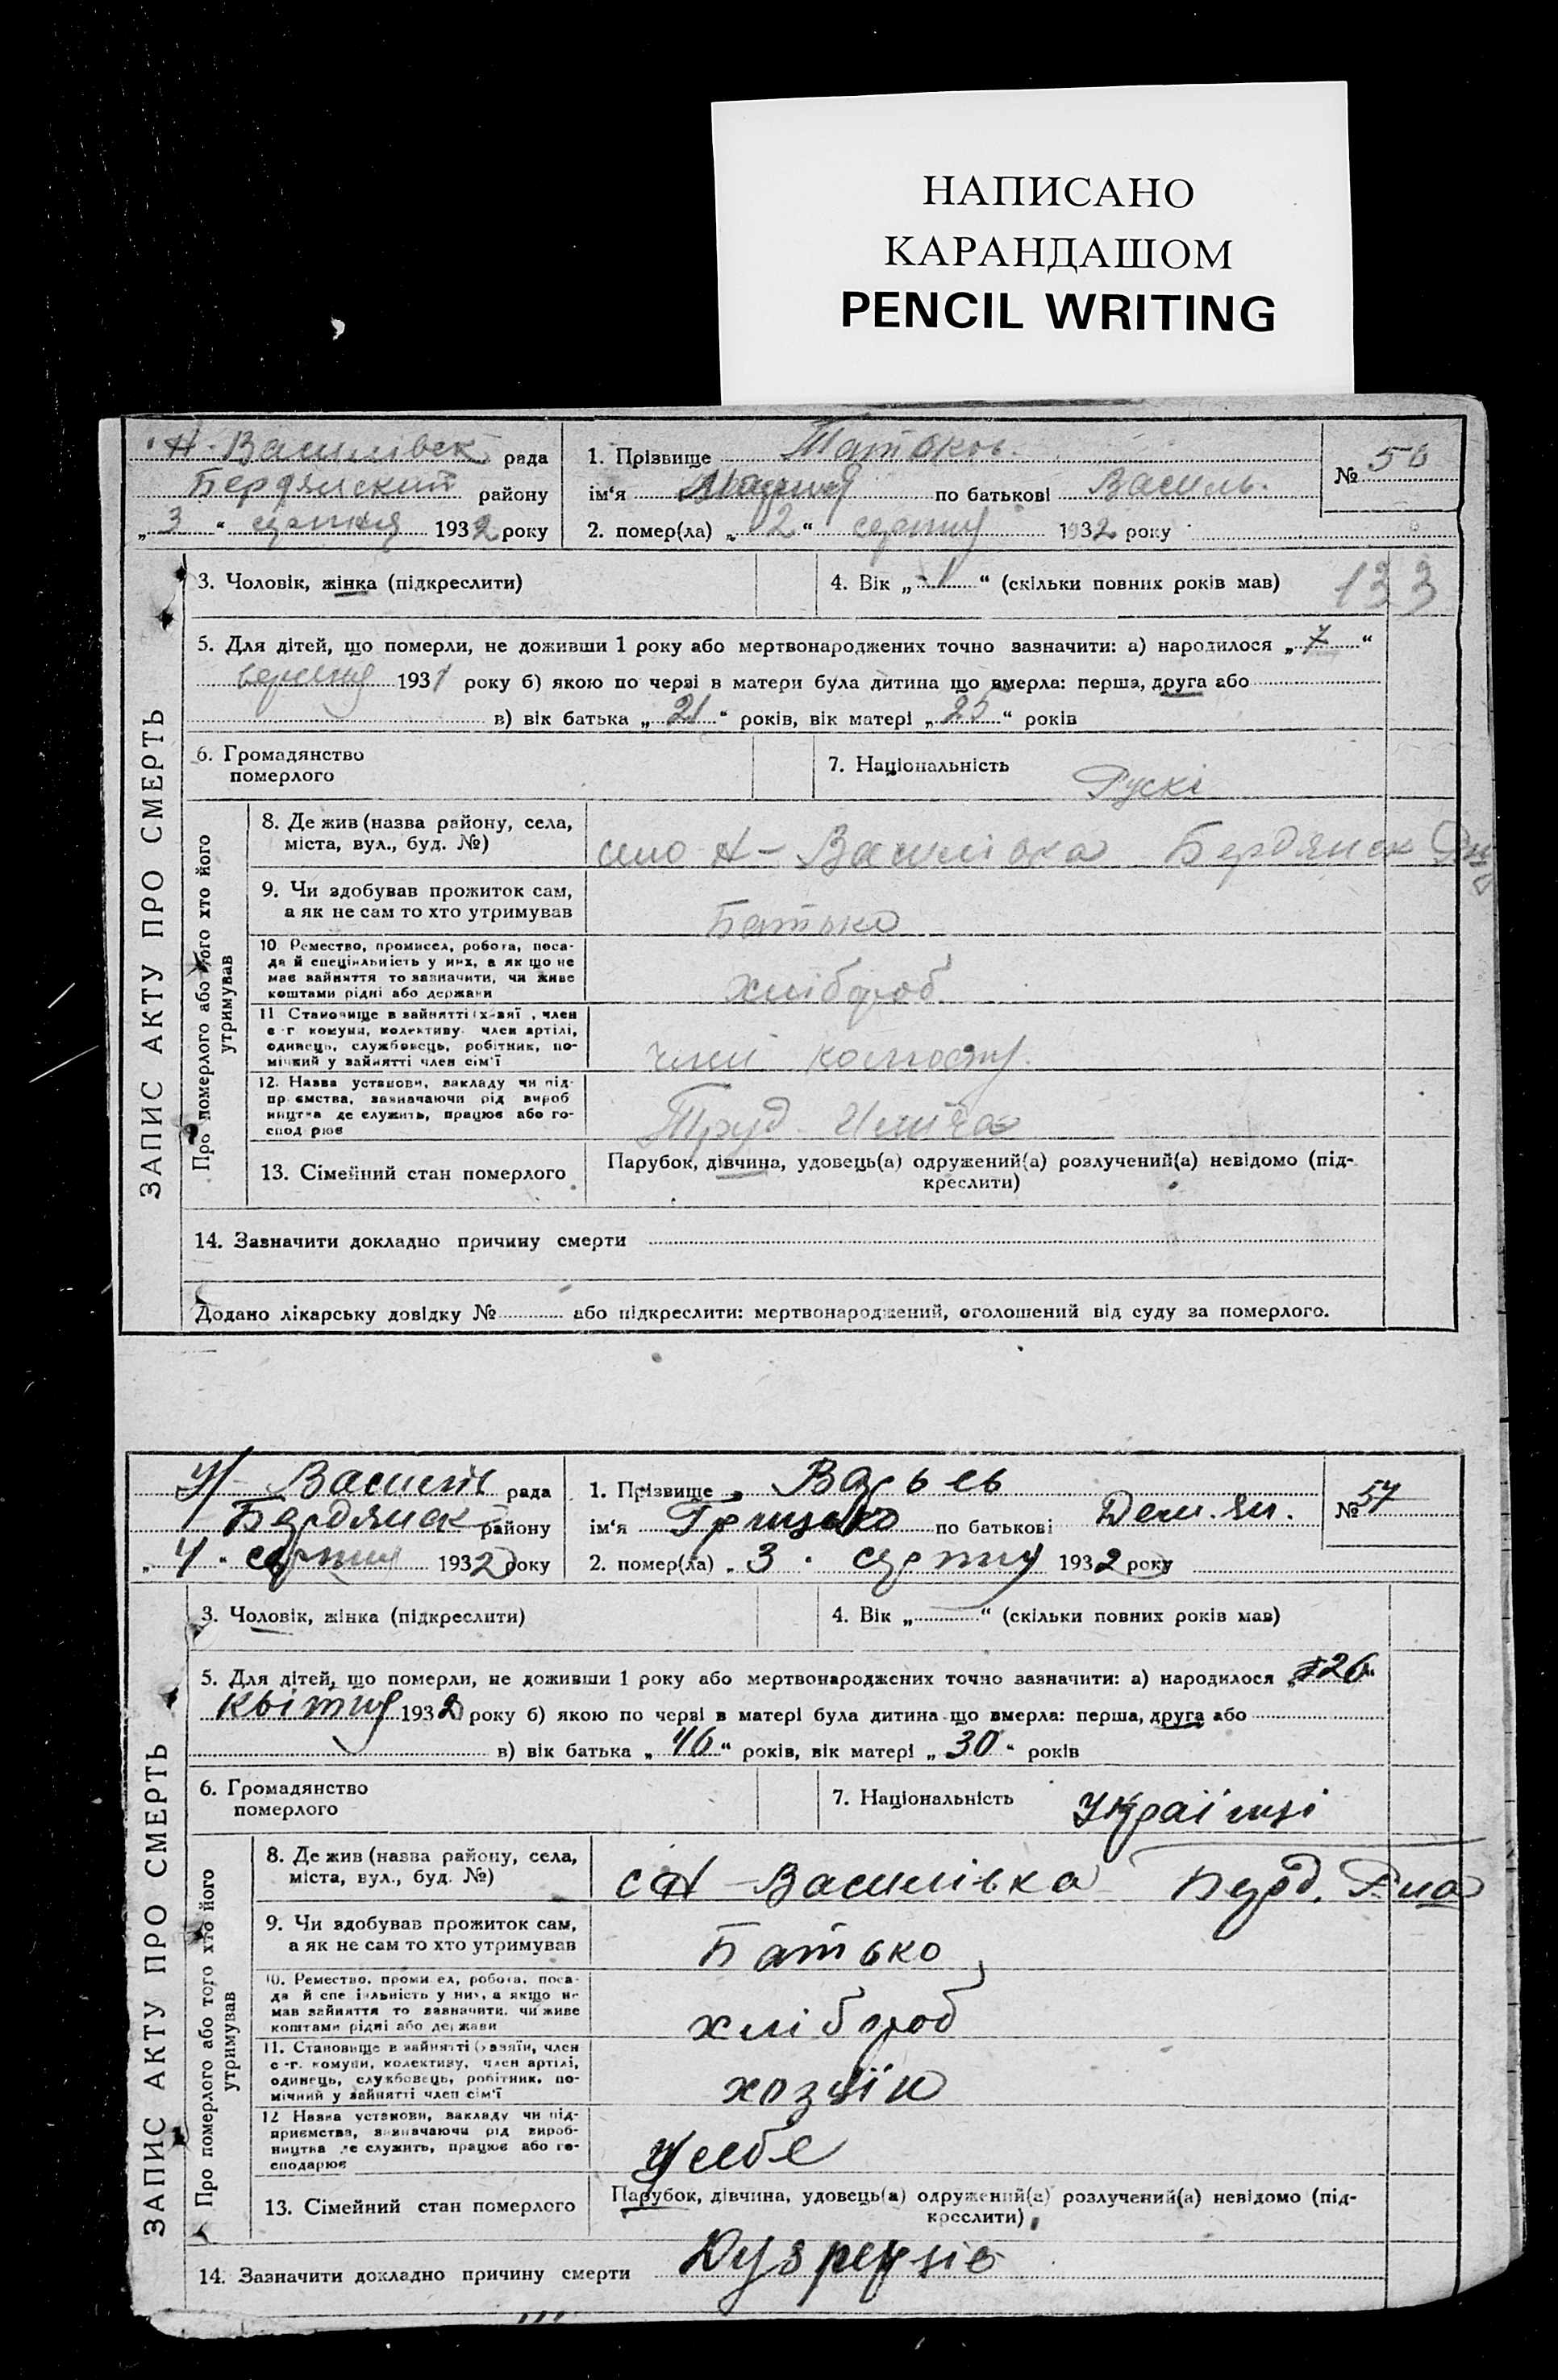 НАПИСАНО
КАРАНДАШОМ
PENCIL WRITING
Н-Василівск рада
Бердянский району
„3“ серпня 1932 року
1. Прізвище
ім'я Мария по батькові Василь.
2. помер(ла) „2“ серпня 1932 року
№ 50
3. Чоловік, жінка (підкреслити)
4. Вік „1“ (скільки повних років мав)
133
5. Для дітей, що померли, не доживши 1 року або мертвонароджених точно зазначити: а) народилося „7“
вересня 1931 року б) якою по черзі в матери була дитина що вмерла: перша, друга або
в) вік батька „21“ років, вік матері „25“ років
6. Громадянство
померлого
7. Національність Рускі
ЗАПИС АКТУ ПРО СМЕРТЬ
Про померлого або того хто його
утримував
8. Де жив (назва району, села,
міста, вул., буд. №)
село Н-Василівка Бердянск
9. Чи здобував прожиток сам,
а як не сам то хто утримував
Батько
10. Ремество, промисел, робота, поса-
да й спеціяльність у них, а як що не
має зайняття то зазначити, чи живе
коштами рідні або держави
хлібороб
11. Становище в зайнятті (хазяї, член
с-г комуни, колективу, член артілі,
одинець, службовець, робітник, по-
мічний у зайнятті член сім'ї
член колгоспу.
12. Назва установи, закладу чи під-
приємства, зазначаючи рід вироб
ництва де служить, працює або го-
сподарює
Труд Ілліча
13. Сімейний стан померлого
Парубок, дівчина, удовець(а) одружений(а) розлучений(а) невідомо (під-
креслити)
14. Зазначити докладно причину смерти
Додано лікарську довідку № або підкреслити: мертвонароджений, оголошений від суду за померлого.
Н-Василів рада
Бердянск району
„4“ серпня 1932 року
1. Прізвище
ім'я Грицько по батькові Дем.ян.
2. помер(ла) „3“ серпня 1932 року
№ 57
3. Чоловік, жінка (підкреслити)
4. Вік „“ (скільки повних років мав)
5. Для дітей, що померли, не доживши 1 року або мертвонароджених точно зазначити: а) народилося „26“
квітня 1932 року б) якою по черзі в матері була дитина що вмерла: перша, друга або
в) вік батька „46“ років, вік матері „30“ років
6. Громадянство
померлого
7. Національність Українці
ЗАПИС АКТУ ПРО СМЕРТЬ
Про померлого або того хто його
утримував
8. Де жив (назва району, села,
міста, вул., буд. №)
с Н-Василівка Берд. Р-на
9. Чи здобував прожиток сам,
а як не сам то хто утримував
Батько
10. Ремество, промисел, робота, поса-
да й спеціяльність у них, а якщо не
мав зайняття то зазначити, чи живе
коштами рідні або держави
хлібороб
11. Становище в зайнятті (хазяїн, член
с-г. комуни, колективу, член артілі,
одинець, службовець, робітник, по-
мічний у зайнятті член сім'ї
хозяїн
12 Назва установи, закладу чи під-
приємства, зазначаючи рід вироб-
ництва де служить, працює або го-
сподарює
У себе
13. Сімейний стан померлого
Парубок, дівчина, удовець(а) одружений(а) розлучений(а) невідомо (під-
креслити)
14. Зазначити докладно причину смерти Dyspepsio